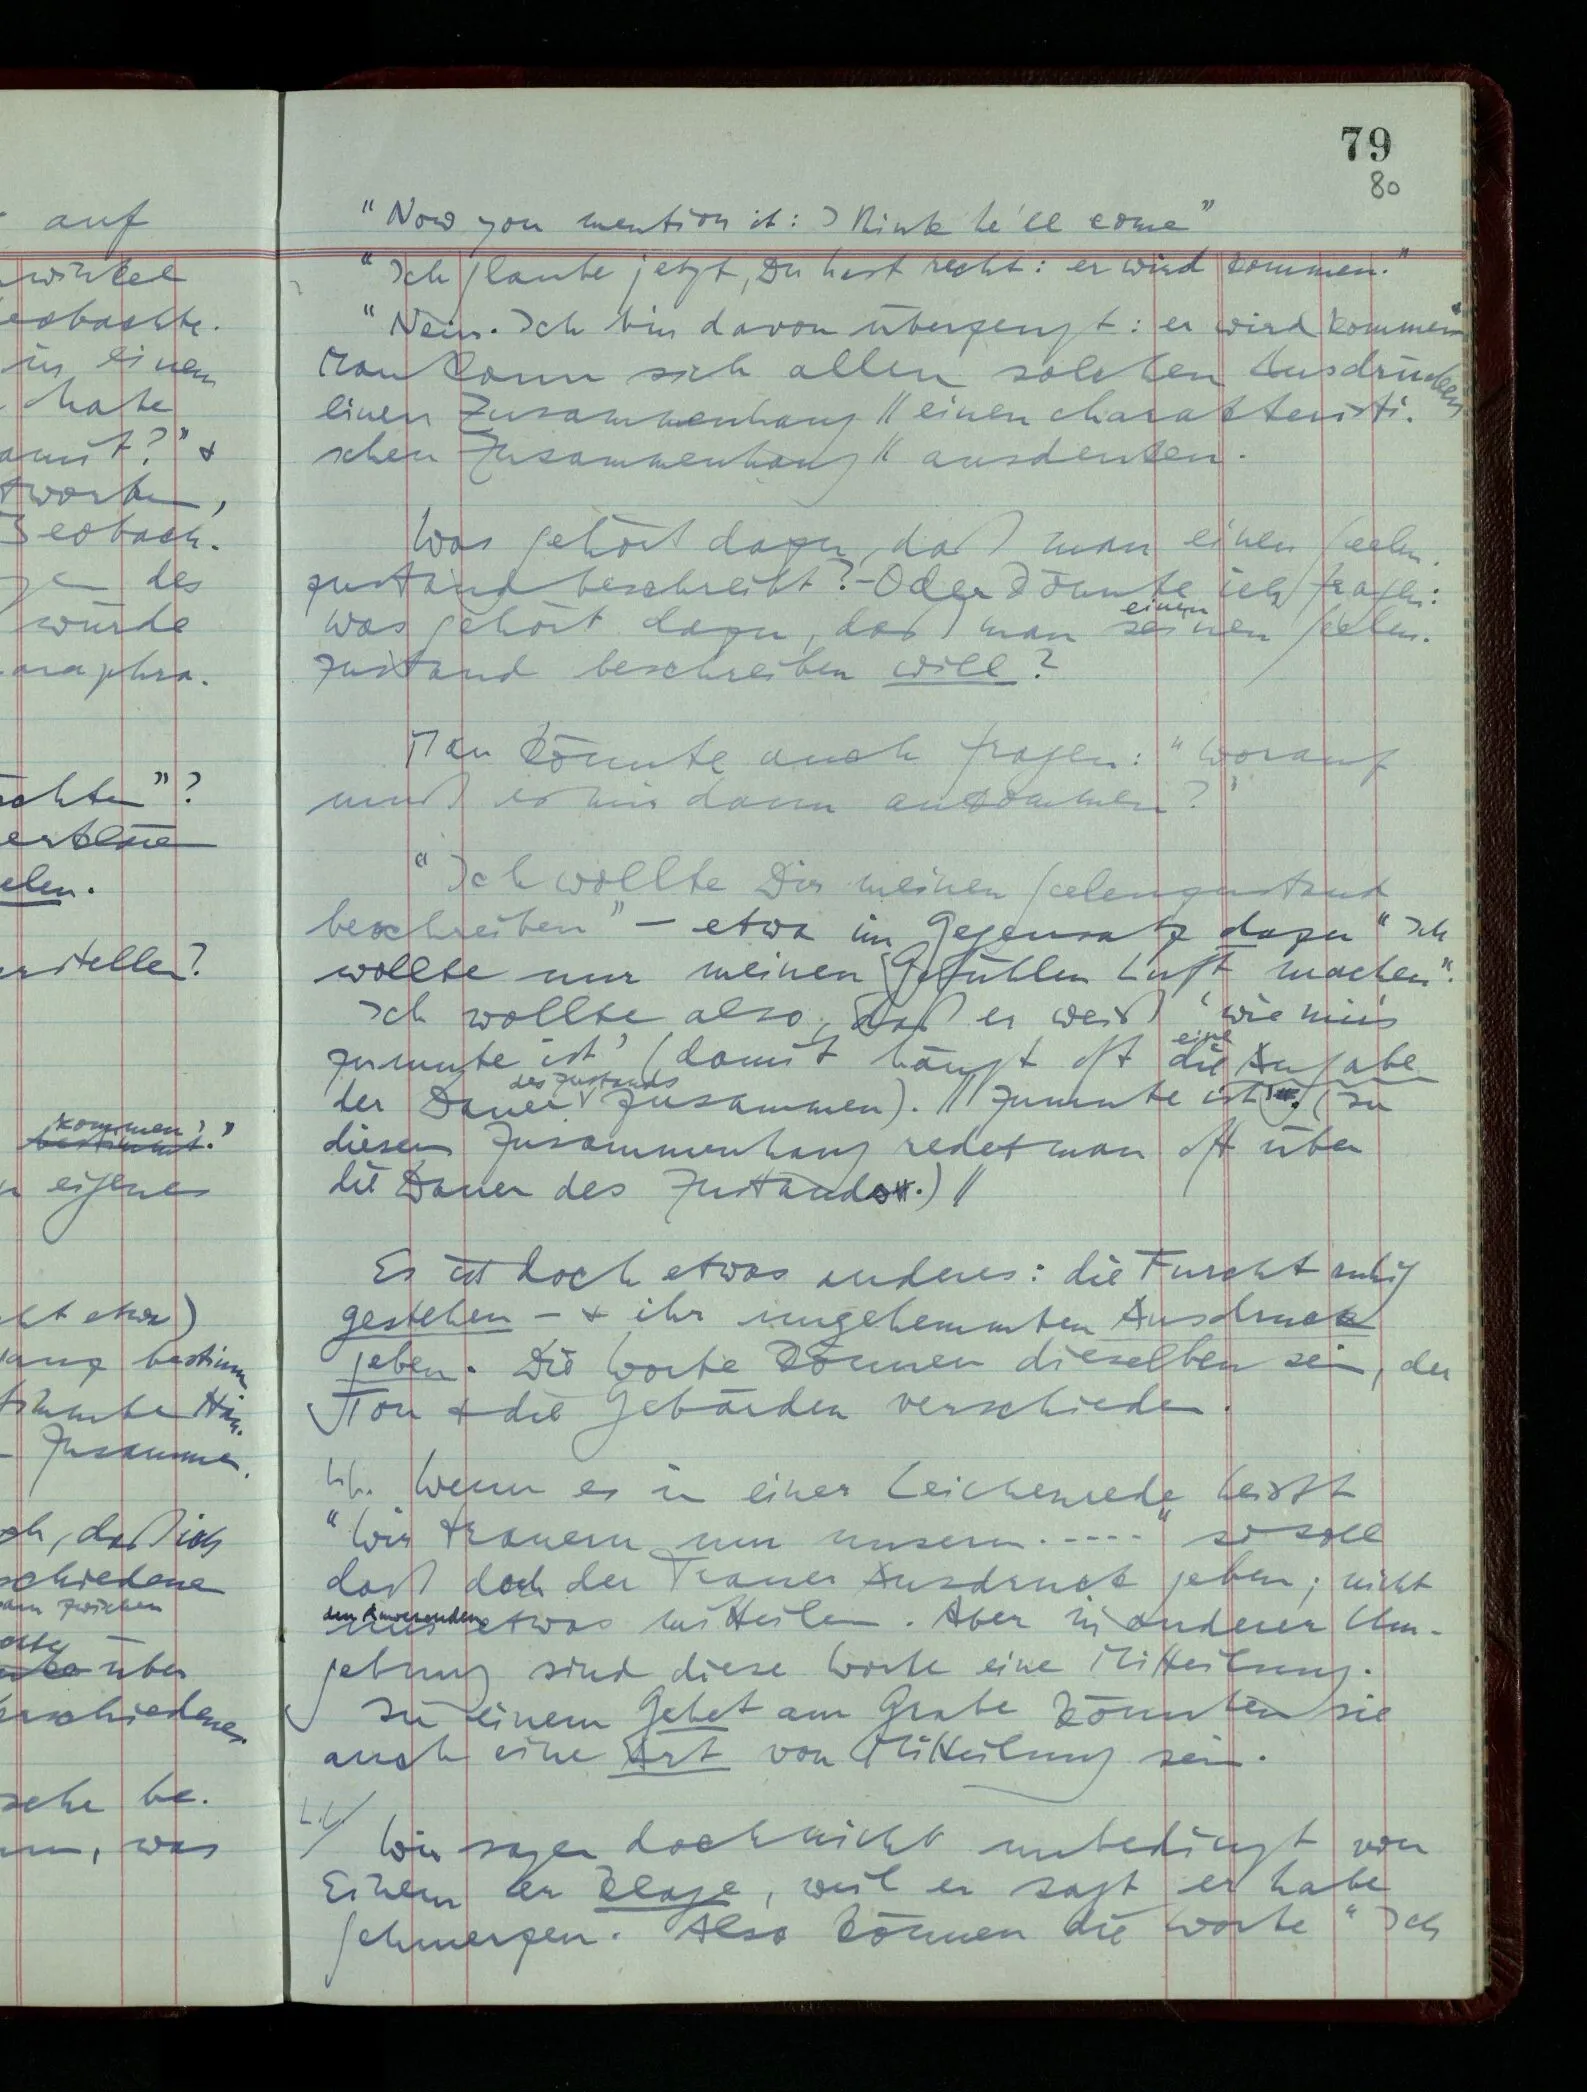 auf
winkel
eobachte.
in einem
habe
amit?" &
tworten,
Beobach-
des
würde
araphra-
chten"?
erklären
elen.
rstellen?
kommen."
bestimmt."
n eigenes
cht etwa)
gang bestimm
timmte Hin-
Zusammen-
ch, daß ich
schiedene
zwischen
über
erschiedenen
sche be-
was
79
80
"Now you mention it: I think he'll come"
"Ich glaube jetzt, Du hast recht: er wird kommen."
"Nein. Ich bin davon überzeugt: er wird kommen"
Man kann sich allen solchen Ausdrücken
einen Zusammenhang // einen charakteristi-
schen Zusammenhang // ausdenken.
Was gehört dazu, daß man einen Seelen-
zustand beschreibt? – Oder könnte ich fragen:
einen
was gehört dazu, daß man seinen Seelen-
zustand beschreiben will?
Man könnte auch fragen: "Worauf
muß es mir dann ankommen?"
"Ich wollte Dir meinen Seelenzustand
beschreiben" – etwa im Gegensatz dazu "Ich
wollte nur meinen Gefühlen Luft machen".
Ich wollte also, daß er weiß 'wie mir's
eine
zumute ist' (damit hängt oft die Angabe
des Zustands
der Dauer zusammen). // zumute ist'. (In
diesem Zusammenhang redet man oft über
die Dauer des Zustands.) //
Es ist doch etwas anderes: die Furcht ruhig
gestehen – & ihr ungehemmten Ausdruck
geben. Die Worte können dieselben sein, der
Ton & die Gebärden verschieden.
Wenn es in einer Leichenrede heißt
"Wir trauern um unsern ....." so soll
das doch der Trauer Ausdruck geben; nicht
den Anwesenden
uns etwas mitteilen. Aber in anderer Um-
gebung sind diese Worte eine Mitteilung.
In einem Gebet am Grabe könnten sie
auch eine Art von Mitteilung sein.
Wir sagen doch nicht unbedingt von
Einem er klage, weil er sagt er habe
Schmerzen. Also können die Worte "Ich